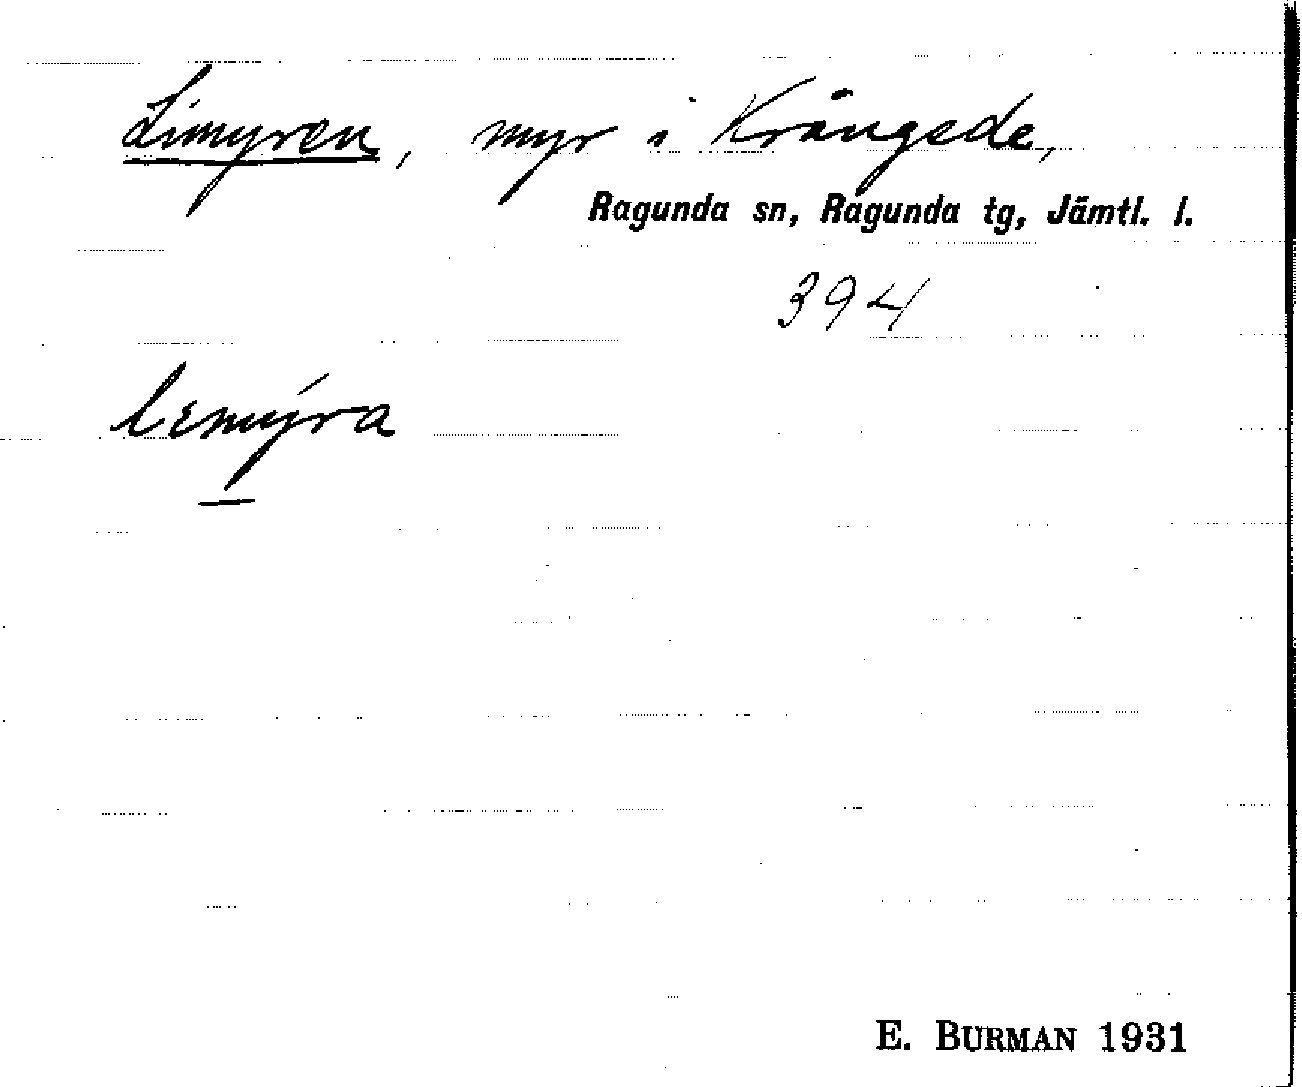 Limyren, myr i Krångede,
Ragunda sn, Ragunda tg, Jämtl. l.
394
lemýra
E. BURMAN 1931